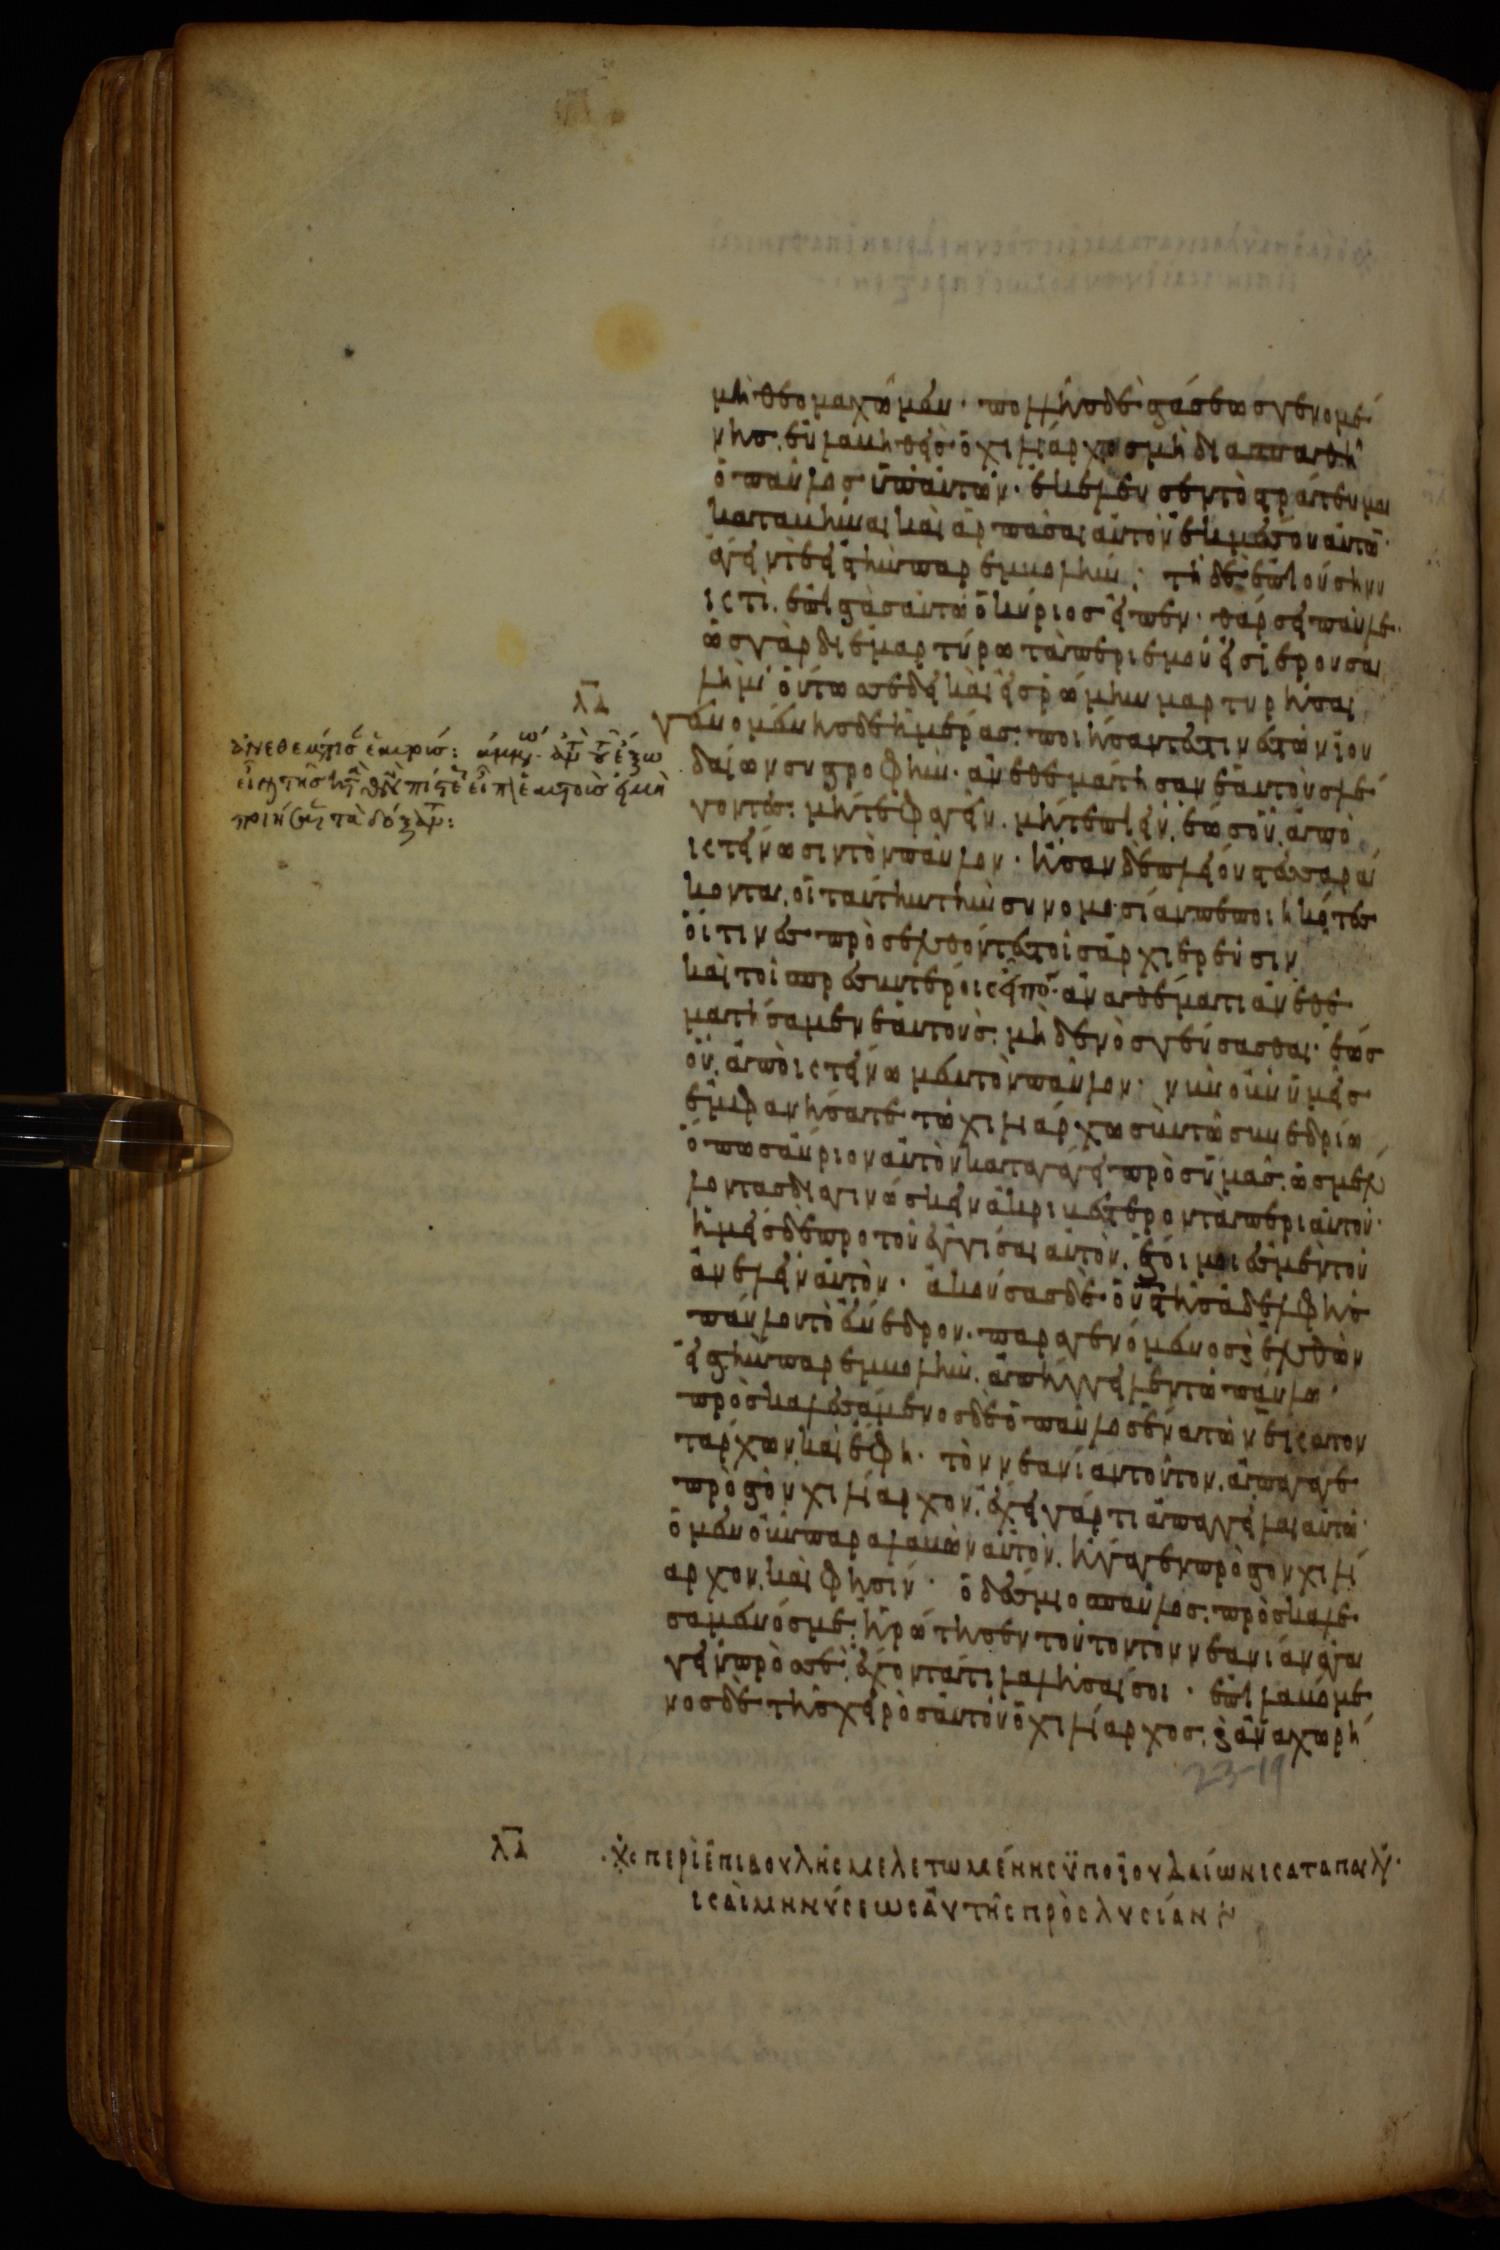 μὴ θεομαχῶμεν· πολλῆς δὲ στάσεως γενομέ
νης, εὐλαβηθεὶς ὁ χιλίαρχος μὴ διασπασθῆ
ὁ παῦλος ὑπ' αὐτῶν· ἐκέλευσεν τὸ στράτευμα
καταβῆναι καὶ ἁρπάσαι αὐτὸν ἐκ μέσου αὐτῶν·
ἄγειν τε εἰς τὴν παρεμβολήν: τῆ δὲ ἐπιούση νυ
κτὶ, ἐπιστὰς αὐτῶ ὁ κύριος εἶπεν· θάρσει παῦλε·
ὡς γὰρ διεμαρτύρω τὰ περὶ ἐμοῦ εἰς ἱερουσα
λὴμ· οὕτω σε δεῖ καὶ εἰς ῥώμην μαρτυρῆσαι
λδ
γενομένης δὲ ἡμέρας· ποιήσαντές τινες τῶν ἰου
δαίων συστροφὴν· ἀνεθεμάτισαν ἑαυτοὺς λέ
γοντες· μήτε φαγεῖν, μήτε πιεῖν, ἕως οὗ, ἀπο
κτείνωσιν τὸν παῦλον· ἦσαν δὲ πλείους τεσσαρά
κοντα, οἱ ταύτην τὴν συνομωσίαν πεποιηκότες
οἵτινες προσελθόντες τοῖς ἀρχιερεῦσιν
καὶ τοῖς πρεσβυτέροις εἶπον· ἀναθέματι ἀνεθε
ματίσαμεν ἑαυτοὺς· μηδενὸς γεύσασθαι· ἕως
οὗ, ἀποκτείνωμεν τὸν παῦλον· νῦν οὖν ὑμεῖς
ἐμφανίσατε τῶ χιλιάρχω σὺν τῶ συνεδρίω
ὅπως αὔριον αὐτὸν καταγάγη πρὸς ὑμᾶς· ὡς μέλ
λοντας διαγινώσκειν ἀκριβέστερον τὰ περὶ αὐτοῦ·
ἡμεῖς δὲ πρὸ τοῦ ἐγγίσαι αὐτὸν, ἕτοιμοί ἐσμεν τοῦ
ἀνελεῖν αὐτὸν· ἀκούσας δὲ ὁ υἱὸς τῆς ἀδελφῆς
παύλου τὸ ἔνεδρον· παραγενόμενος καὶ εἰσελθὼν
εἰς τὴν παρεμβολὴν, ἀπήγγειλεν τῶ παύλω·
προσκαλεσάμενος δὲ ὁ παῦλος ἕνα τῶν ἑκατον
τάρχων, καὶ ἔφη· τὸν νεανίαν τοῦτον, ἀπάγαγε
πρὸς τὸν χιλίαρχον, ἔχει γάρ τι ἀπαγγεῖλαι αὐτῶ·
ὁ μὲν οὖν παραλαβὼν αὐτὸν, ἤγαγεν πρὸς τὸν χιλί
αρχον, καὶ φησίν· ὁ δέσμιος παῦλος, προσκαλε
σάμενός με, ἠρώτησεν τοῦτον τὸν νεανίαν ἀγα
γεῖν πρὸς σὲ, ἔχοντά τι λαλῆσαί σοι· ἐπιλαβόμε
νος δὲ τῆς χειρὸς αὐτοῦ ὁ χιλίαρχος, καὶ ἀναχωρή
23-19
λδ
περὶ ἐπιβουλῆς μελετωμένης ὑπὸ ἰουδαίων κατὰ παύλου·
καὶ μηνύσεως αὐτῆς πρὸς λυσίαν